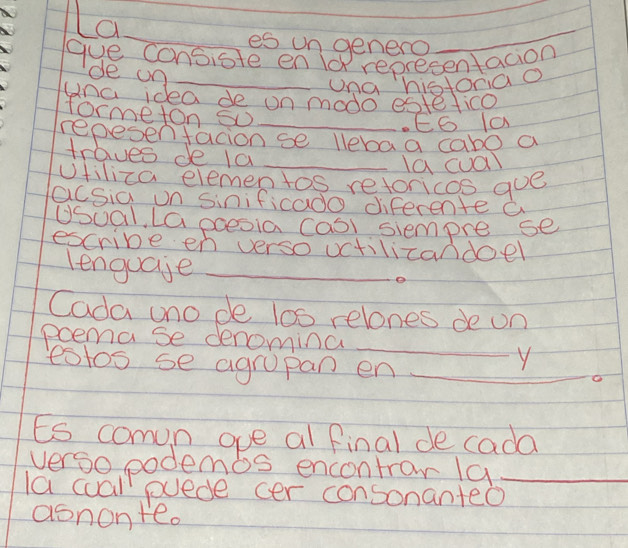 La ______ es un genero ______
que consiste en la representacion
de un ______ una historia o
una idea de un modo estetico
formeton su ______. Es la
repesentacion se lleba a cabo a
traves de la ______ la cual
utiliza elementos retoricos que
acsia un sinificado diferente a
usual. La poesia casi siempre se
escribe en verso uctilizando el
lenguaje ______.
Cada uno de los relones de un
poema se denomina ______ y
estos se agrupan en ______.
Es comun que al final de cada
verso podemos encontrar la ______
la cual puede cer consonante o
asnonte.